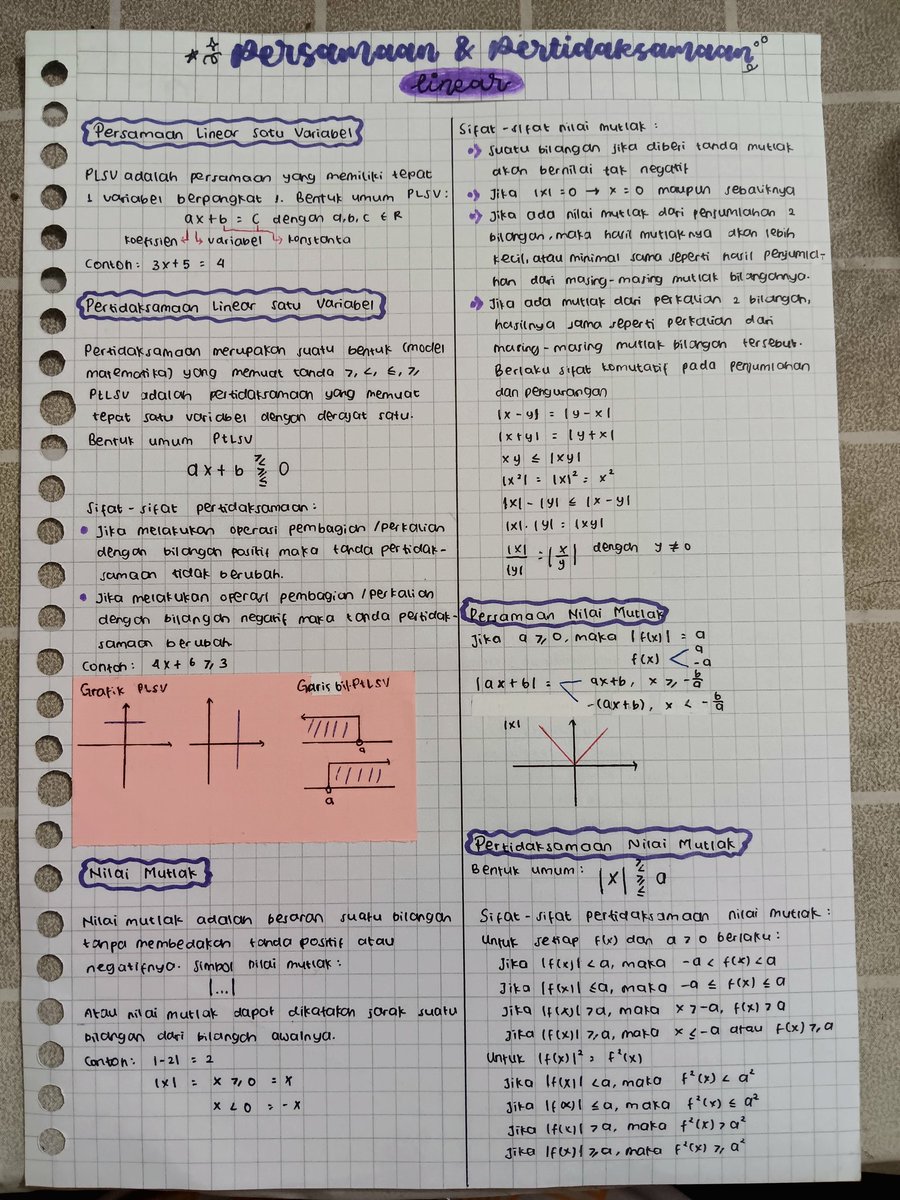 Persamaan & Pertidaksamaan
linear
Persamaan Linear Satu Variabel
PLSV adalah persamaan yang memiliki tepat
1 variabel berpangkat 1. Bentuk umum PLSV:
ax + b = c dengan a, b, c ∈ R
koefisien variabel konstanta
Contoh: 3x + 5 = 4
Pertidaksamaan Linear Satu Variabel
Pertidaksamaan merupakan suatu bentuk (model
matematika) yang memuat tanda >, <, ≤, ≥,
PtLSV adalah pertidaksamaan yang memuat
tepat satu variabel dengan derajat satu.
Bentuk umum PtLSV
ax + b ≥ ≤ 0
Sifat-sifat pertidaksamaan:
• Jika melakukan operasi pembagian/perkalian
dengan bilangan positif maka tanda pertidak-
samaan tidak berubah.
• Jika melakukan operasi pembagian/perkalian
dengan bilangan negatif maka tanda pertidak-
samaan berubah.
Contoh: 4x + 6 ≥ 3
Grafik PLSV
Garis bil. PtLSV
a
a
Nilai Mutlak
Nilai mutlak adalah besaran suatu bilangan
tanpa membedakan tanda positif atau
negatifnya. Simbol nilai mutlak:
|...|
Atau nilai mutlak dapat dikatakan jarak suatu
bilangan dari bilangan awalnya.
Contoh: |-2| = 2
|x| = x ≥ 0 = x
x < 0 = -x
Sifat-sifat nilai mutlak:
Suatu bilangan jika diberi tanda mutlak
akan bernilai tak negatif
Jika |x| = 0 → x = 0 maupun sebaliknya
Jika ada nilai mutlak dari penjumlahan 2
bilangan, maka hasil mutlaknya akan lebih
kecil, atau minimal sama seperti hasil penjumla-
han dari masing-masing mutlak bilangannya.
Jika ada mutlak dari perkalian 2 bilangan,
hasilnya sama seperti perkalian dari
masing-masing mutlak bilangan tersebut.
Berlaku sifat komutatif pada penjumlahan
dan pengurangan
|x - y| = |y - x|
|x + y| = |y + x|
xy ≤ |xy|
|x²| = |x|² = x²
|x| - |y| ≤ |x - y|
|x| . |y| = |xy|
|x|/|y| = |x/y| dengan y ≠ 0
Persamaan Nilai Mutlak
Jika a ≥ 0, maka |f(x)| = a
f(x) < a -a
|ax + b| = ax + b, x ≥ -b/a
-(ax + b), x < -b/a
|x|
Pertidaksamaan Nilai Mutlak
Bentuk umum: |x| ≥ ≤ a
Sifat-sifat pertidaksamaan nilai mutlak:
Untuk setiap f(x) dan a > 0 berlaku:
Jika |f(x)| < a, maka -a < f(x) < a
Jika |f(x)| ≤ a, maka -a ≤ f(x) ≤ a
Jika |f(x)| > a, maka x > -a, f(x) > a
Jika |f(x)| ≥ a, maka x ≤ -a atau f(x) ≥ a
Untuk |f(x)|² = f²(x)
Jika |f(x)| < a, maka f²(x) < a²
Jika |f(x)| ≤ a, maka f²(x) ≤ a²
Jika |f(x)| > a, maka f²(x) > a²
Jika |f(x)| ≥ a, maka f²(x) ≥ a²